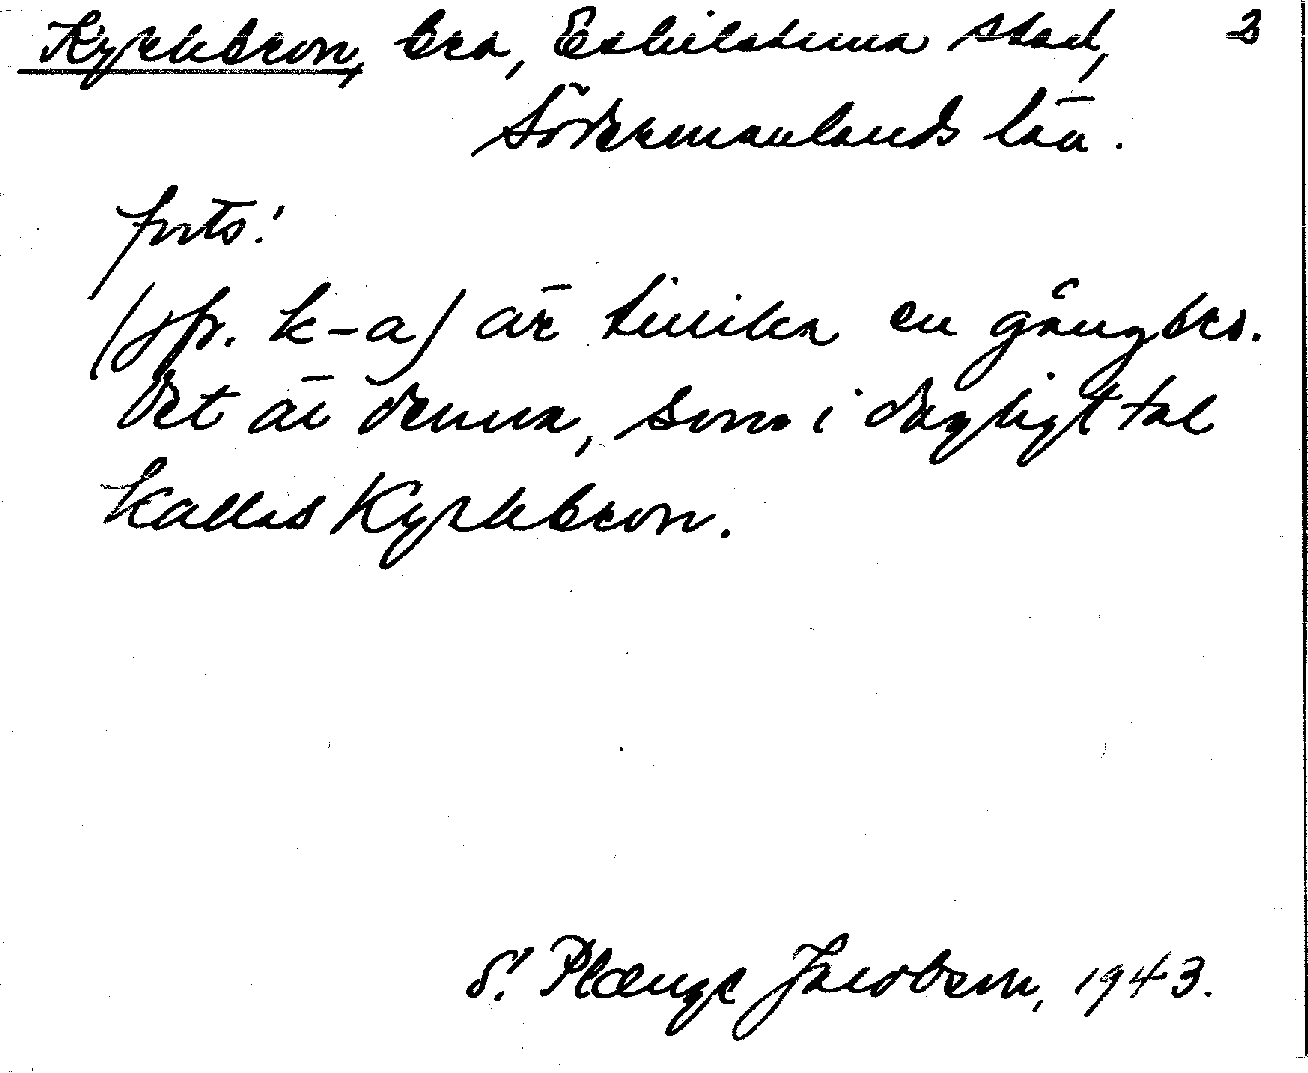 Kyrkbron, bro, Eskilstuna stad, 2
Södermanlands län.
forts!
(jfr. k-a) är tillika en gångbro.
Det är denna, som i dagligt tal
kallas Kyrkbron.
S! Plænge Jacobson, 1943.